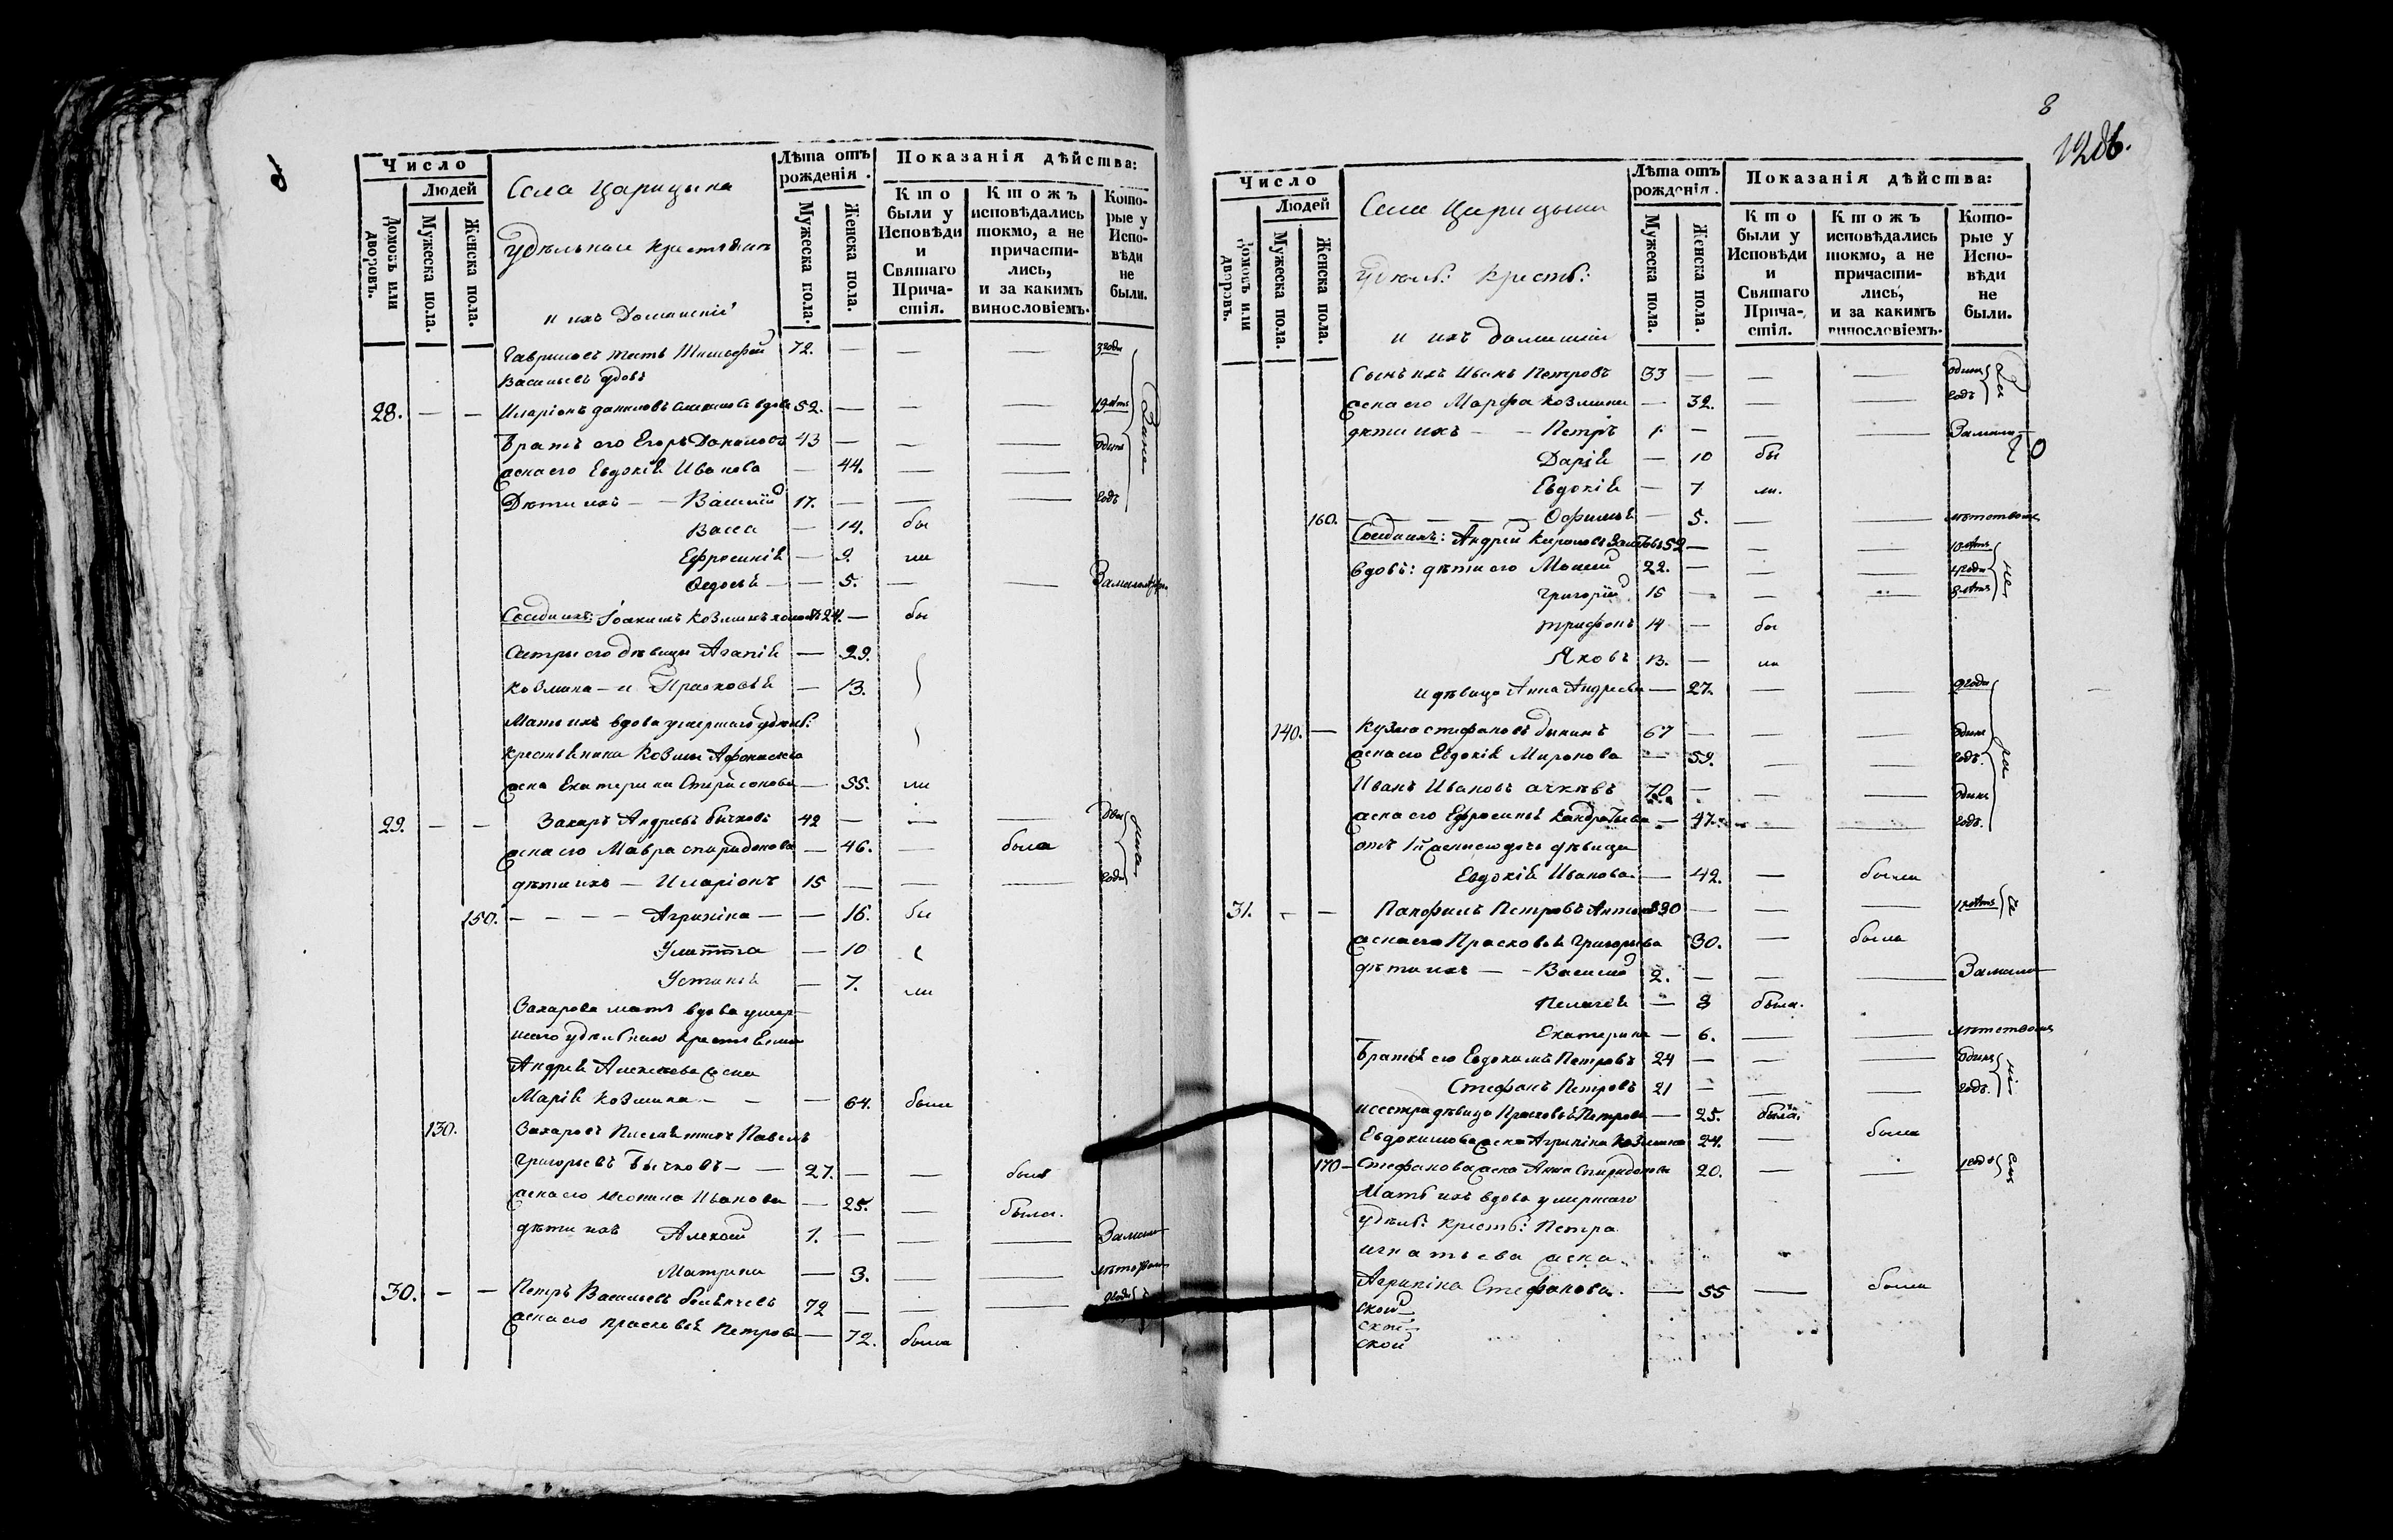 Число
Людей
Домовъ или дворовъ.
Мужеска пола.
Женска пола.
Села Царицына
удѣльные крестьяне
и ихъ домашніи
Лѣта отъ рожденія.
Мужеска пола.
Женска пола.
Показанія дѣйства:
Кто были у Исповѣди и Святаго Причастія.
Ктожъ исповѣдались токмо, а не причастились, и за какимъ винословіемъ.
Которые у Исповѣди не были.
Гавриловъ тесть Тимофей 72. — — — 3 года
Васильевъ вдовъ
28. — — Иларіонъ Даниловъ вдовъ 52. — — —
Братъ его Егоръ Даниловъ 43 — — — одинъ
жена его Евдокія Иванова — 44. — —
Дѣти ихъ — — Василій 17. — — — годъ
Васса — 14. бы
Ефросинія — 9. ли
Федосья — — 5. — —
Сосѣди ихъ: Іоакимъ Козминъ холостъ 24. — бы
Сестры его дѣвицы Агапія — 29.
Козмина — и Прасковья — 13.
Мать ихъ вдова умершаго удѣль:
крестьянина Козмы Афонасьева
жена Екатерина Спиридонова — 55. ли
29. — — Захаръ Андреевъ Бычковъ 42 — — — два
жена его Мавра Спиридонова — 46. — была
дѣти ихъ — Иларіонъ 15 — — — года
150. — — — — Агрипина — — 16. бы
Улитта — 10
Устинья — 7. ли
Захарова мать вдова умер-
шаго удѣльнаго крестьянина
Андрея Алексеева жена
Марія Козмина — — — 64. была
130. Захаровъ племянникъ Павелъ
Григорьевъ Бычковъ — — 27. — — былъ
жена его Неонила Иванова — 25. — была.
дѣти ихъ Алексей 1. — — — За мало-
Матрена — 3. — — лѣтствомъ
30. — — Петръ Васильевъ 72 — — —
жена его Прасковья Петрова — 72. была
8
1286.
Число
Людей
Домовъ или дворовъ.
Мужеска пола.
Женска пола.
Села Царицына
Удѣль: кресть:
и ихъ домашніи
Лѣта отъ рожденія.
Мужеска пола.
Женска пола.
Показанія дѣйства:
Кто были у Исповѣди и Святаго Причастія.
Ктожъ исповѣдались токмо, а не причастились, и за какимъ винословіемъ.
Которые у Исповѣди не были.
Сынъ ихъ Иванъ Петровъ 33 — — — одинъ
жена его Марфа Козмина — 32. — — годъ
дѣти ихъ — — Петръ 1 — — — За мало-
Дарія — 10 бы
Евдокія — 7 ли.
160. — — — — — Офимья — 5. — — лѣтствомъ
Сосѣди ихъ: Андрей 52 — — — 10 лѣтъ
вдовъ: дѣти его Моисей 22. — — — 4 года
Григорій 15 — — — 8 лѣтъ
Трифонъ 14 — бы
Яковъ 13. — ли
и дѣвица Анна Андреева — 27. — —
140. — Кузма Стефановъ Быкинъ 67 — — — одинъ
жена его Евдокія Миронова — 59. — — годъ.
Иванъ Ивановъ 70 — — — одинъ
жена его Ефросинья Кондратьева — 47. — — годъ.
отъ 1й жены его дочь дѣвица
Евдокія Иванова — 42. — была
31. — — Панфилъ Петровъ 30 — — —
жена его Прасковья Григорьева 30. — была
дѣти ихъ — — Василій 2. — — — За мало-
Пелагея — 8 была.
Екатерина — 6. — — лѣтствомъ
Братья его Евдокимъ Петровъ 24 — — — одинъ
Стефанъ Петровъ 21 — — — годъ.
и сестра дѣвица Прасковья Петрова — 25. была.
Евдокимова жена Агрипина Козмина 24. — была
170 — Стефанова жена Анна Спиридонова 20. — — 1 годъ
Мать ихъ вдова умершаго
удѣль: кресть: Петра
Игнатьева жена
Агрипина Стефанова. — 55 — была
ской
ской
ской